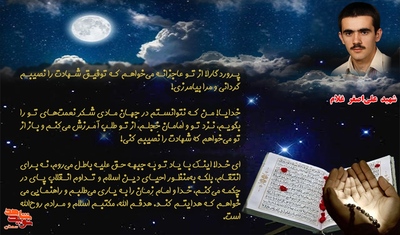 پروردگارا از تو عاجزانه می‌خواهم که توفیق شهادت را نصیبم
گردانی و مرا بیامرزی!
خدایا! من که نتوانستم در جهان مادی شکر نعمت‌های تو را
بگویم، نزد تو و امامان خجلم، از تو طلب آمرزش می‌کنم و باز از
تو می‌خواهم که شهادت را نصیبم کنی!
ای خدا! اینک با یاد تو به جبهه حق علیه باطل می‌روم، نه برای
انتقام، بلکه به‌منظور احیای دین اسلام و تداوم انقلاب، پای در
چکمه می‌کنم. خدا و امام زمان را به یاری می‌طلبم و راهنمایی می
خواهم که هدایتم کند. هدفم الله، مکتبم اسلام و مرادم روح‌الله
است.
شهید علی‌اصغر غلام